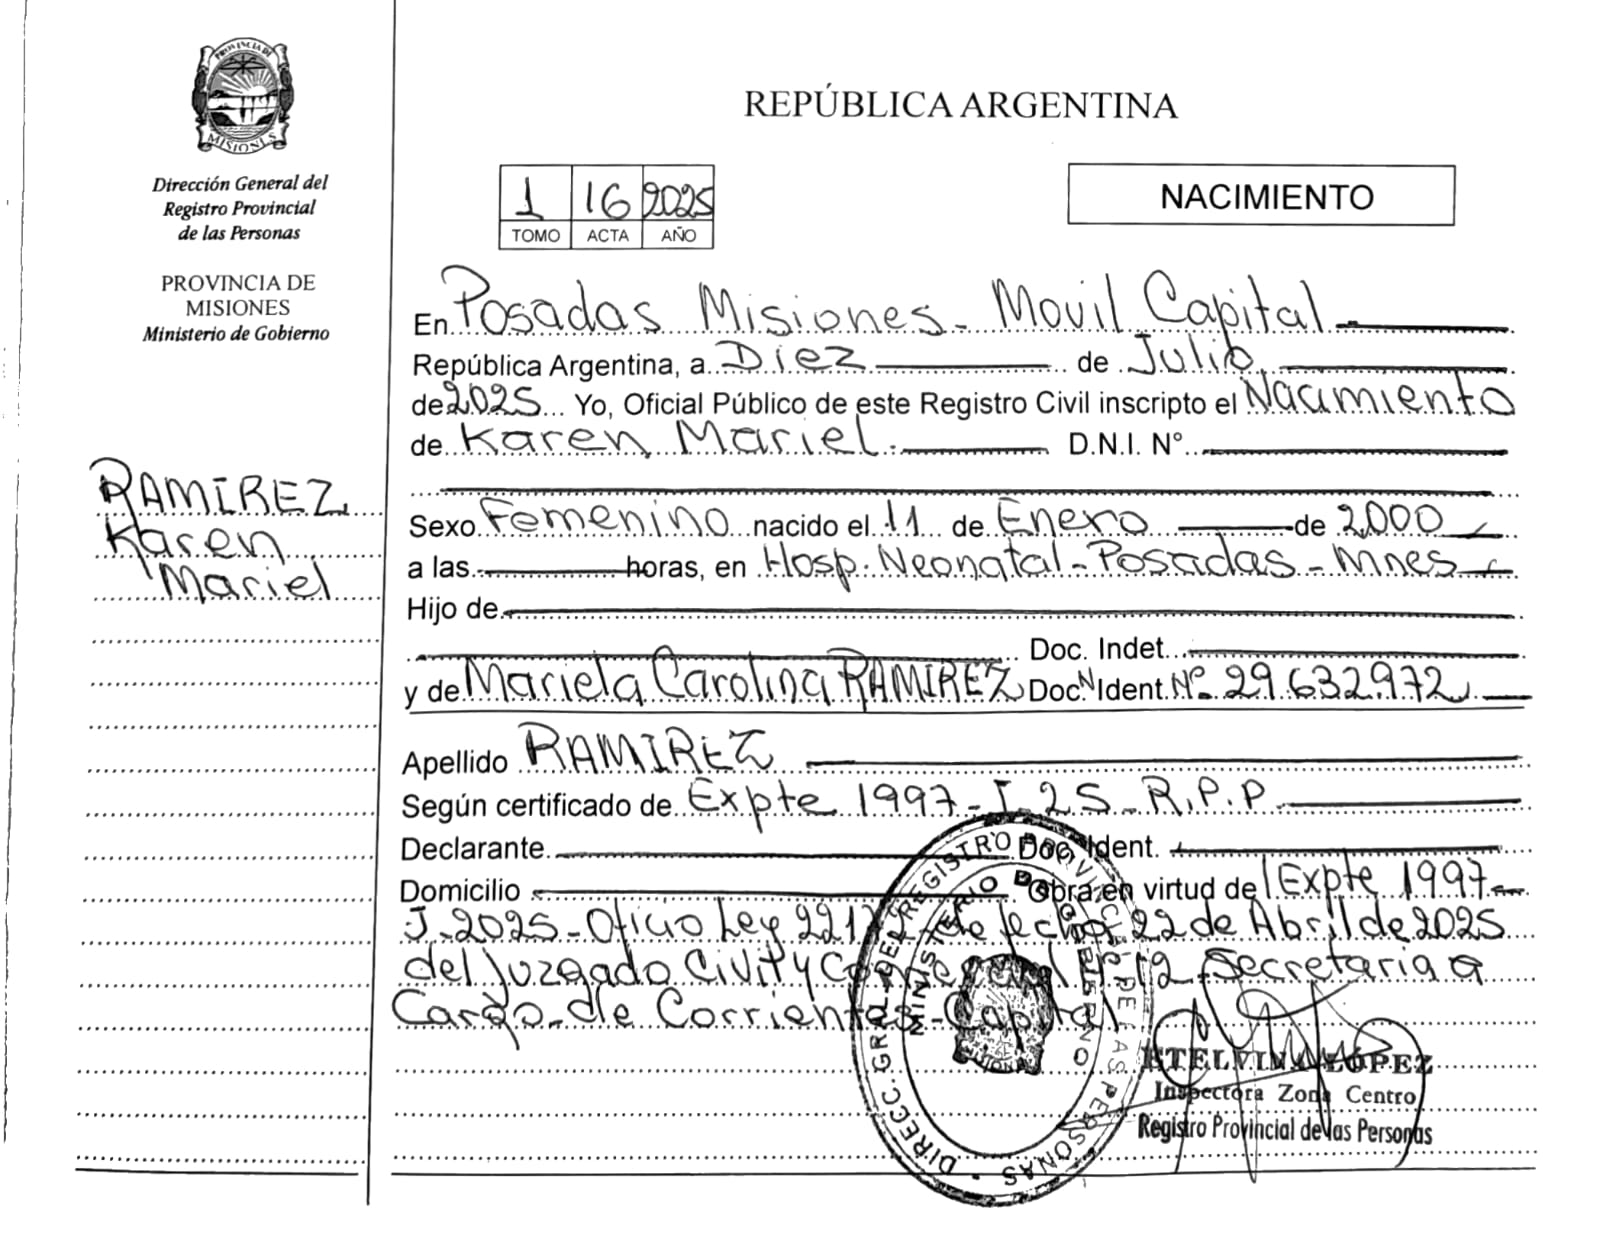 PROVINCIA DE
MISIONES
Dirección General del
Registro Provincial
de las Personas
PROVINCIA DE
MISIONES
Ministerio de Gobierno
RAMIREZ
Karen
Mariel
REPÚBLICA ARGENTINA
1 16 2025
TOMO ACTA AÑO
NACIMIENTO
En Posadas Misiones - Movil Capital
República Argentina, a Diez de Julio
de 2025 Yo, Oficial Público de este Registro Civil inscripto el Nacimiento
de Karen Mariel. D.N.I. N°
Sexo Femenino nacido el 11 de Enero de 2000
a las horas, en Hosp. Neonatal - Posadas - Mnes
Hijo de
Doc. Indet.
y de Mariela Carolina RAMIREZ Doc. Ident. Nº 29.632.972
Apellido RAMIREZ
Según certificado de Expte 1997 - 25 - R.P.P
Declarante Doc. Ident.
Domicilio Obra en virtud del Expte 1997-
J-2025 - Oficio Ley de fecha 22 de Abril de 2025
del Juzgado Civil y Comercial Secretaria a
Cargo de Corrientes - Capital
DIRECC. GRAL. DEL REGISTRO PROVINCIAL DE LAS PERSONAS
MINISTERIO DE GOBIERNO
ETELVINA LÓPEZ
Inspectora Zona Centro
Registro Provincial de las Personas